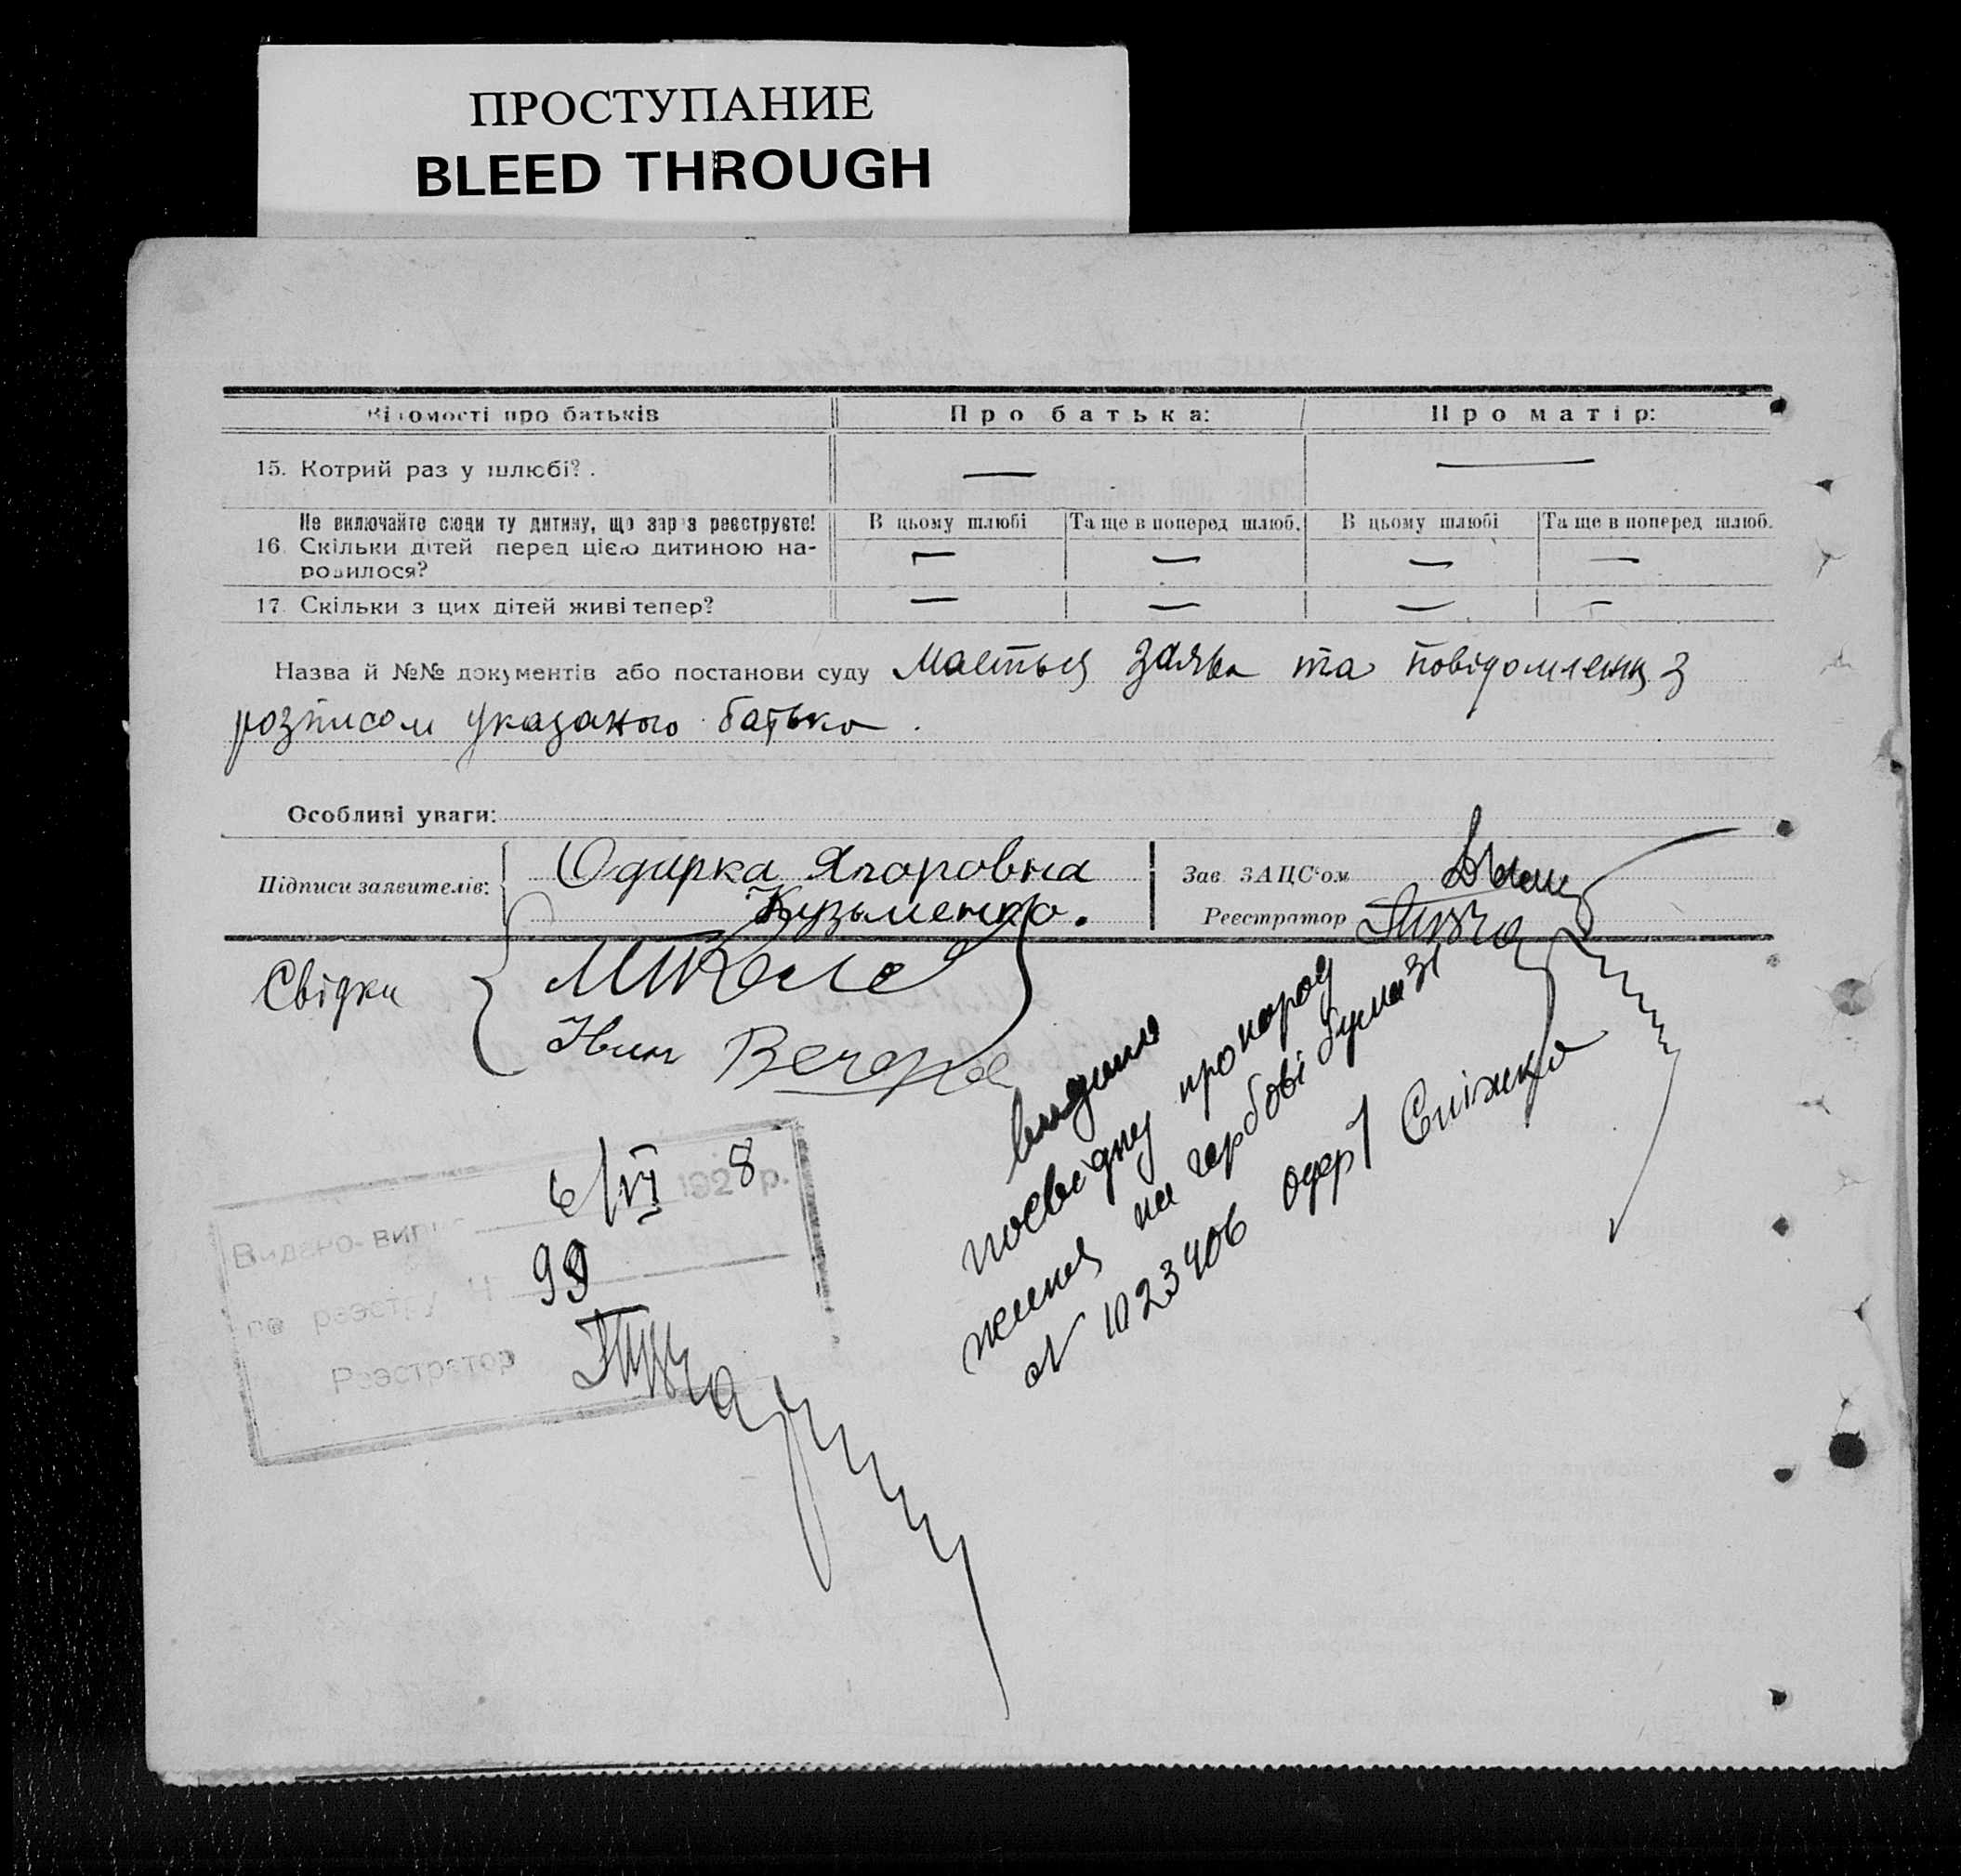 ПРОСТУПАНИЕ
BLEED THROUGH
Відомості про батьків
Про батька:
Про матір:
15. Котрий раз у шлюбі? .
— —
Не включайте сюди ту дитину, що зараз реєструєте!
В цьому шлюбі
Та ще в поперед шлюб.
В цьому шлюбі
Та ще в поперед шлюб.
16. Скільки дітей перед цією дитиною на-
родилося?
— — — —
17. Скільки з цих дітей живі тепер?
— — — —
Назва й №№ документів або постанови суду Мається заява та повідомлення з
розписом указаного батька.
Особливі уваги:
Підписи заявителів: Одарка Ягоровна
Кузьменко.
Зав. ЗАЦС'ом
Реєстратор
Свідки
Іван
видано
посвідку про народ
ження на гербові бумазі
№ 1023406 одер
6/VI 1928 р.
Видано-вип
по реэстру N 99
Реэстратор